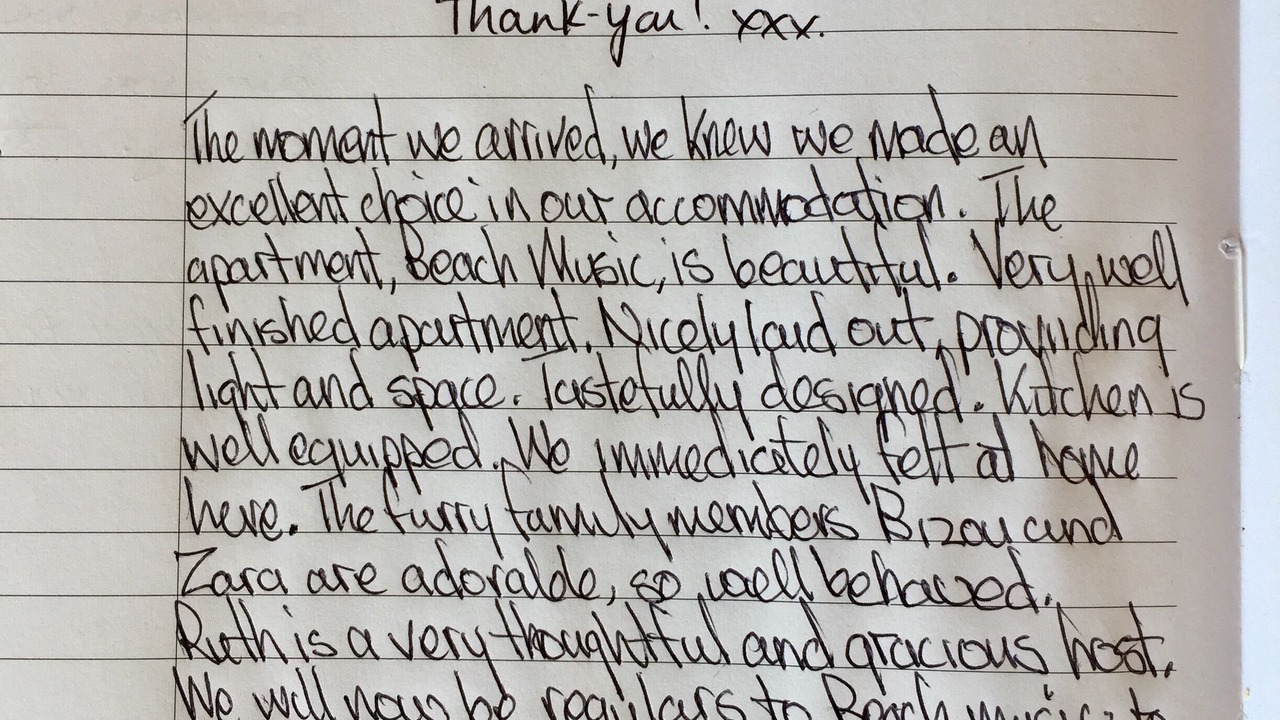 Thank-you! xxx.
The moment we arrived, we knew we made an
excellent choice in our accommodation. The
apartment, Beach Music, is beautiful. Very well
finished apartment. Nicely laid out, providing
light and space. Tastefully designed. Kitchen is
well equipped. We immedicetely felt at home
here. The furry family members Bizou and
Zara are adorable, so well behaved.
Ruth is a very thoughtful and gracious host.
We will now be regulars to Beach music to